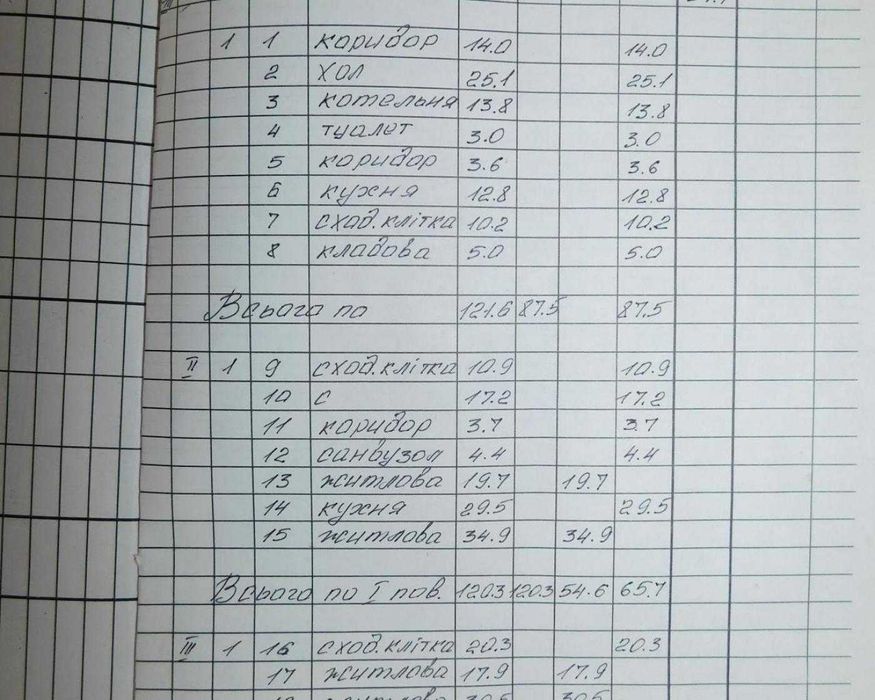 1 1 коридор 14.0 14.0
2 хол 25.1 25.1
3 котельня 13.8 13.8
4 туалет 3.0 3.0
5 коридор 3.6 3.6
6 кухня 12.8 12.8
7 сход.клітка 10.2 10.2
8 кладова 5.0 5.0
Всього по 121.6 87.5 87.5
II 1 9 сход.клітка 10.9 10.9
10 с 17.2 17.2
11 коридор 3.7 3.7
12 санвузол 4.4 4.4
13 житлова 19.7 19.7
14 кухня 29.5 29.5
15 житлова 34.9 34.9
Всього по I пов. 120.3 120.3 54.6 65.7
III 1 16 сход.клітка 20.3 20.3
17 житлова 17.9 17.9